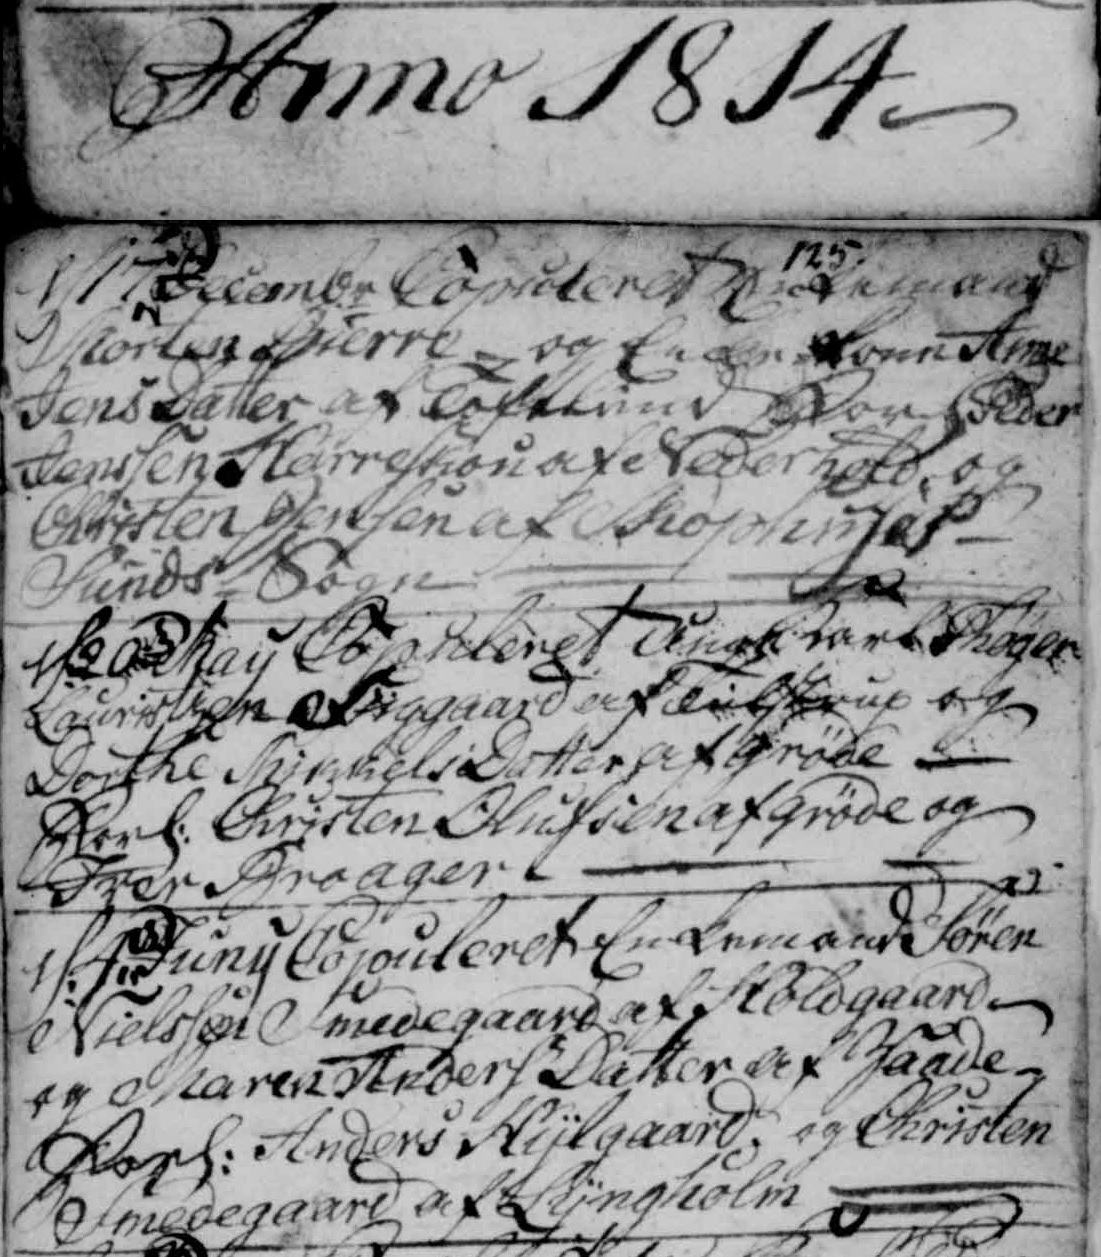 Anno 1814
125.
d 17 Decembr Copuleret Enkemand
Morten Bierre og Enken Kone Anne
Jens Datter af Toftlund Forl. Peder
Jenssen Harreskou af Nederhold, og
Christen Jensen af
Sunds Sogn
d 20 May Copuleret Ungkarl Thøger
Lauridsen af og
Dorthe Mikkels Datter af Grøde
Forl: Christen Olufsen af Grøde og
Iver Kroager
d: 4 Juny Copuleret Enkemand Søren
Nielssen Smedegaard af Koldgaard
og Maren Anders Datter af Haade
Forl: Anders Kiilgaard, og Christen
Smedegaard af Lyngholm